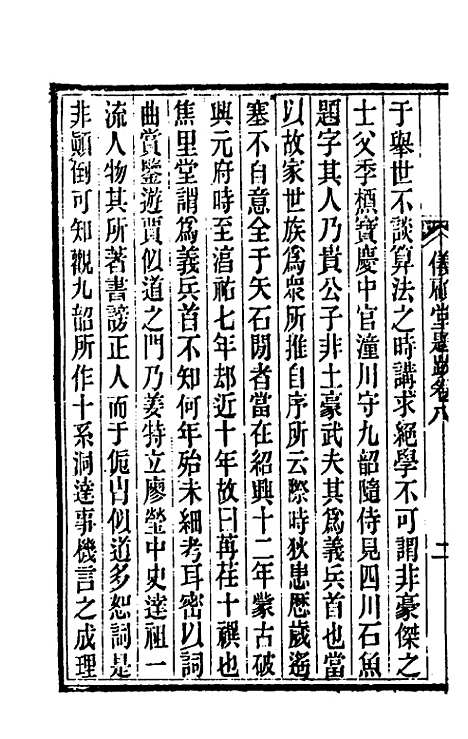 儀顧堂題跋卷八 二
于舉世不談算法之時講求絕學不可謂非豪傑之
士父季槱寶慶中官潼川守九韶隨侍見四川石魚
題字其人乃貴公子非土豪武夫其爲義兵首也當
以故家世族爲衆所推自序所云際時狄患歷歲遙
塞不自意全于矢石閒者當在紹興十二年蒙古破
興元府時至湻祐七年却近十年故曰苒荏十禩也
焦里堂謂爲義兵首不知何年殆未細考耳密以詞
曲賞鑒遊賈似道之門乃姜特立廖瑩中史達祖一
流人物其所著書謗正人而于侂胄似道多恕詞是
非顚倒可知觀九韶所作十系洞達事機言之成理